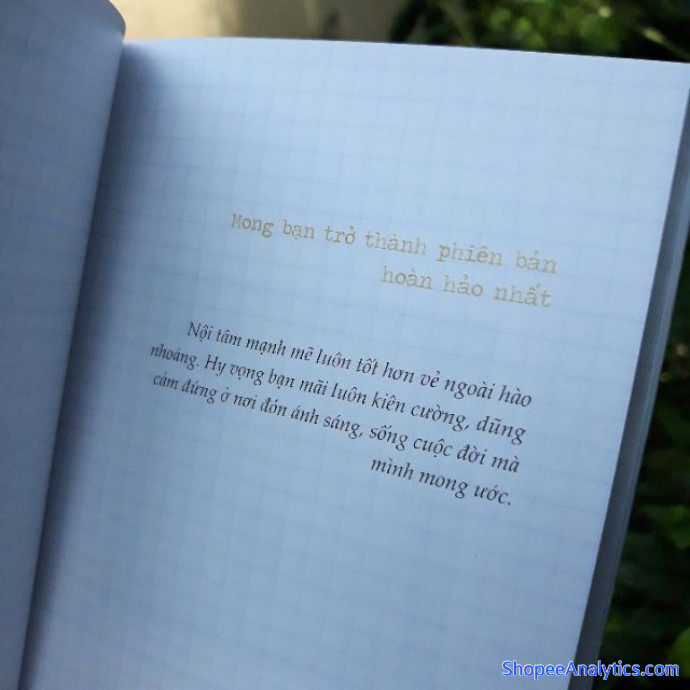 Mong bạn trở thành phiên bản
hoàn hảo nhất
Nội tâm mạnh mẽ luôn tốt hơn vẻ ngoài hào
nhoáng. Hy vọng bạn mãi luôn kiên cường, dũng
cảm đứng ở nơi đón ánh sáng, sống cuộc đời mà
mình mong ước.
ShopeeAnalytics.com